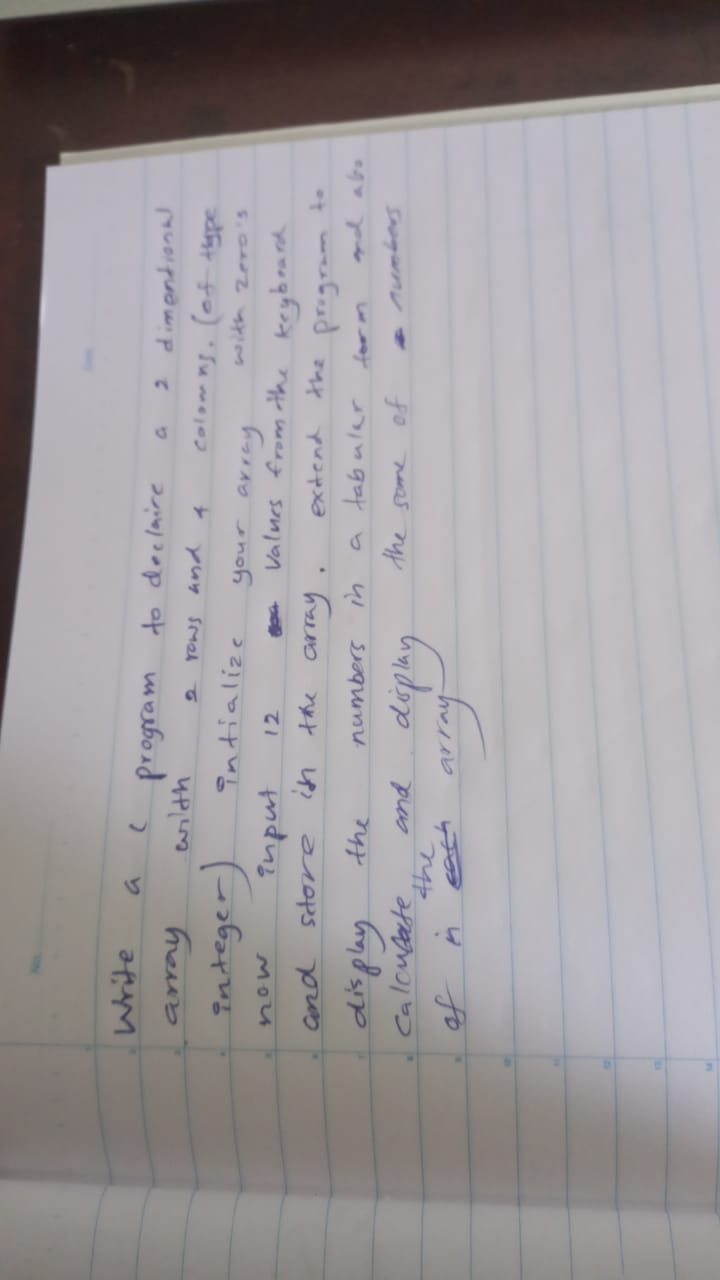 No.
Date
Write a C program to declaire a 2 dimentional
array with 2 rows and 4 colomns. (of type
integer) intialize your array with zero's
now input 12 values from the keyboard
and store in the array. extend the program to
display the numbers in a tabular form and also
calculate and display the some of numbers
of in the array